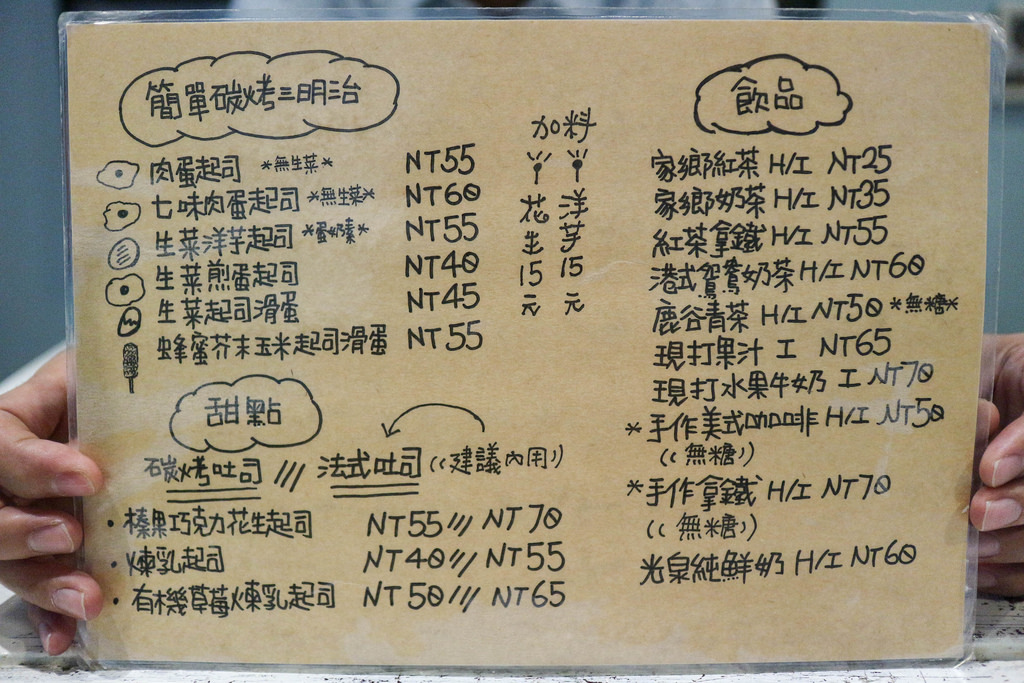 簡單碳烤三明治
肉蛋起司 *無生菜* NT55
七味肉蛋起司 *無生菜* NT60
生菜洋芋起司 *蛋奶素* NT55
生菜煎蛋起司 NT40
生菜起司滑蛋 NT45
蜂蜜芥末玉米起司滑蛋 NT55
加料
花生15元
洋芋15元
甜點
碳烤吐司 /// 法式吐司 ((建議內用))
·榛果巧克力花生起司 NT55 /// NT70
·煉乳起司 NT40 // NT55
·有機草莓煉乳起司 NT50 /// NT65
飲品
家鄉紅茶 H/I NT25
家鄉奶茶 H/I NT35
紅茶拿鐵 H/I NT55
港式鴛鴦奶茶 H/I NT60
鹿谷青茶 H/I NT50 *無糖*
現打果汁 I NT65
現打水果牛奶 I NT70
*手作美式咖啡 H/I NT50
((無糖))
*手作拿鐵 H/I NT70
((無糖))
光泉純鮮奶 H/I NT60